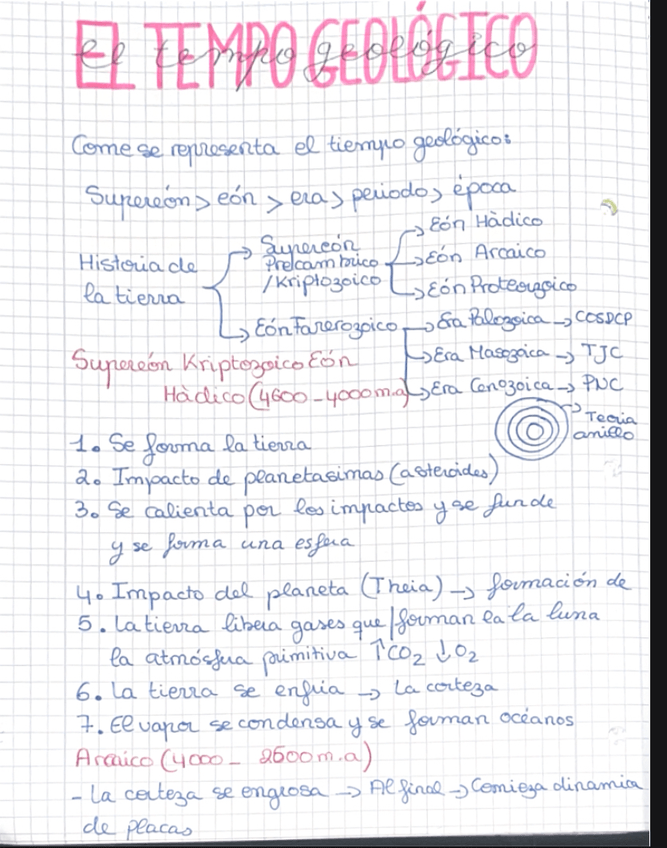 EL TEMPO GEOLÓGICO
el tempo geológico
Come se representa el tiempo geológico:
Supereón > eón > era > periodo > época
Historia de la tierra
Supereón Precambrico /Kriptozoico
Eón Hàdico
Eón Arcaico
Eón Proteorzoico
Eón Fanerozoico
Era Palozoica → COSDCP
Era Masozoica → TJC
Era Cenozoica → PNC
Supereón Kriptozoico Eón
Hàdico (4600 - 4000 m.a)
Teoria anillo
1. Se forma la tierra
2. Impacto de planetasimas (asteroides)
3. Se calienta por los impactos y se funde
y se forma una esfera
4. Impacto del planeta (Theia) → formación de
5. La tierra libera gases que | forman la la luna
la atmósfera primitiva ↑CO2 ↓O2
6. La tierra se enfria → La corteza
7. El vapor se condensa y se forman océanos
Arcaico (4000 - 2500 m.a)
- La corteza se engrosa → Al final → Comieza dinamica
de placas